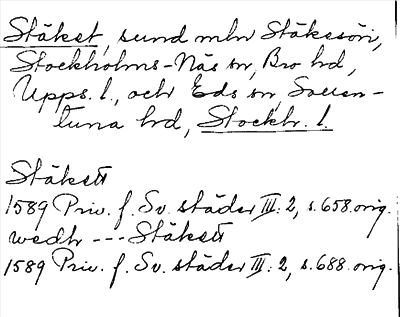 Stäket, sund mln Stäkesön,
Stockholms-Näs sn, Bro hd,
Upps. l., och Eds sn, Sollen-
tuna hd, Stockh. l.
Stäkett
1589 Priv. f. Sv. städer III: 2, s. 658 orig.
wedh --- Stäkett
1589 Priv. f. Sv. städer III: 2, s. 688 orig.